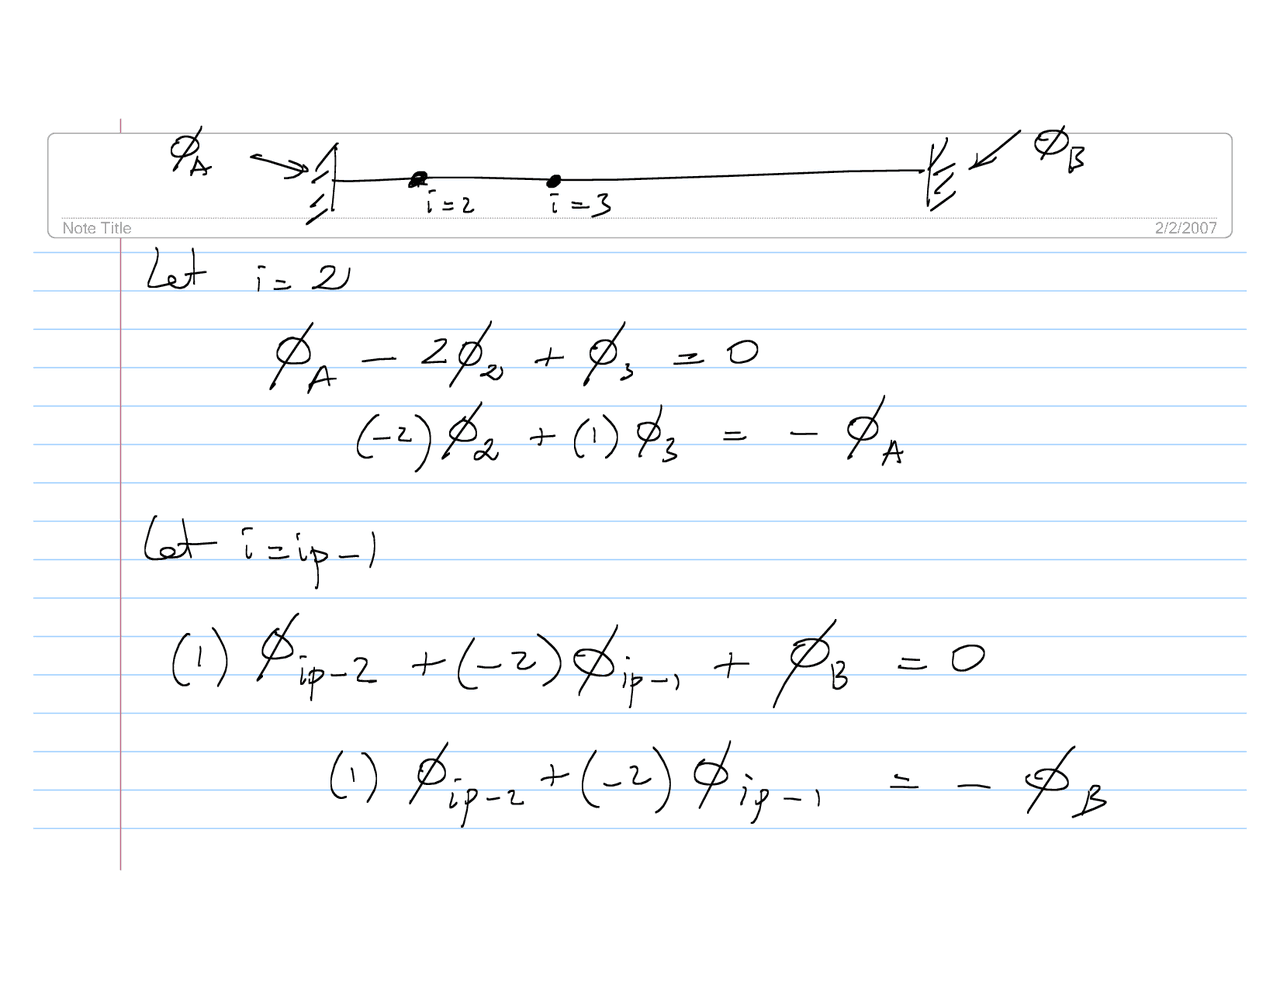 ϕ_A ϕ_B
i=2 i=3
Note Title 2/2/2007
Let i=2
ϕ_A − 2ϕ_2 + ϕ_3 = 0
(-2)ϕ_2 + (1)ϕ_3 = − ϕ_A
Let i=ip−1
(1) ϕ_ip−2 + (−2)ϕ_ip−1 + ϕ_B = 0
(1) ϕ_ip−2 + (−2) ϕ_ip−1 = − ϕ_B